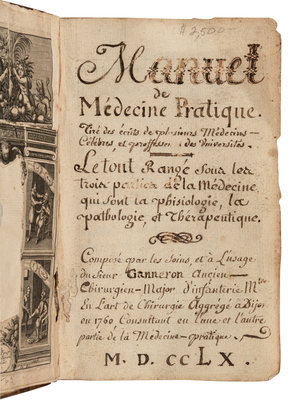 $2,500-
Manuel
de
Médecine Pratique.
Tiré des écrits de plusieurs Médecins
Célèbres et proffesseurs des Universités.
Le tout Rangé sous les
trois parties de la Médecine,
qui sont la phisiologie, la
pathologie, et Thérapeutique.
Composé par les soins, et à L'usage
du Sieur Ganneron Ancien
Chirurgien-Major d'infanterie Mtre
En L'art de Chirurgie Aggrégé à Dijon
en 1760 Consultant en l'une et l'autre
partie de la Médecine pratique.
M. D. ccLX.